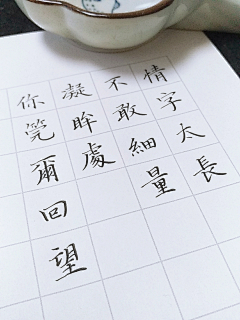 情字太長
不敢細量
凝眸處
你莞爾回望